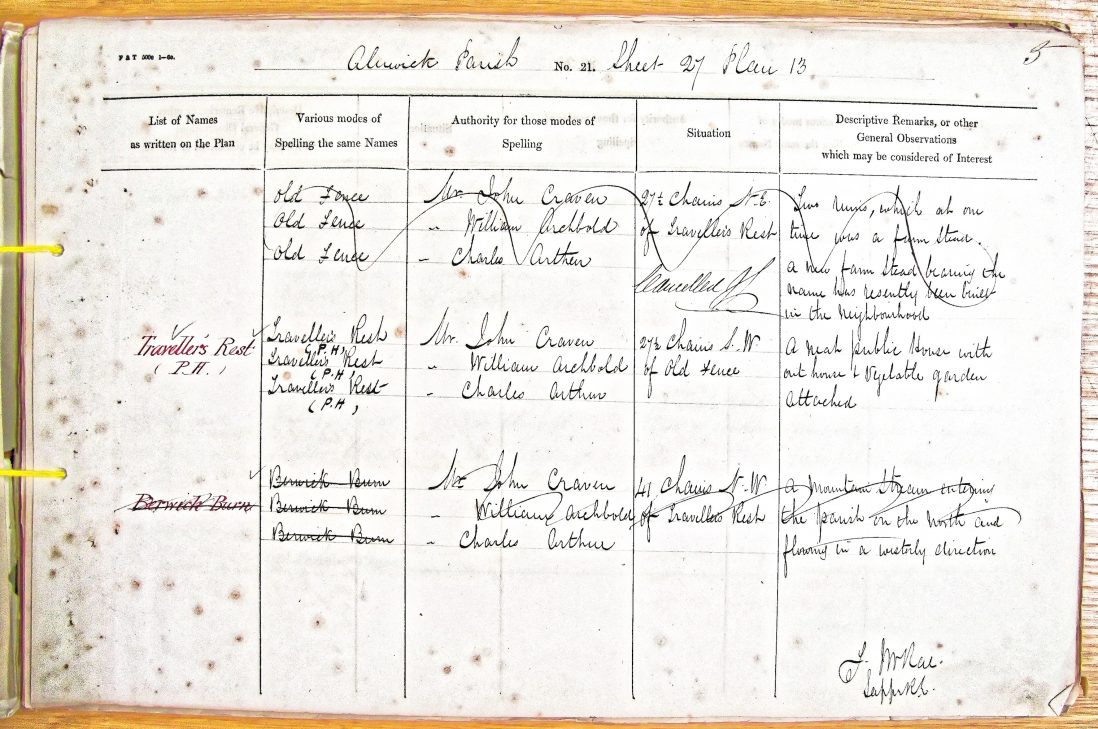 F & T 5000 1—60.
5
Alnwick Parish No. 21. Sheet 27 Plan 13
List of Names
as written on the Plan
Various modes of
Spelling the same Names
Authority for those modes of
Spelling
Situation
Descriptive Remarks, or other
General Observations
which may be considered of Interest
Old Fence
Old Fence
Old Fence
Mr. John Craven
„ William Archbold
„ Charles Arthur
27½ Chains N.E.
of Travellers Rest
Cancelled
Two ruins, which at one
time was a farm Stead.
A new farm Stead bearing the
name has resently been built
in the Neighbourhood
Traveller's Rest
(P.H.)
Traveller's Rest
(P.H)
Traveller's Rest
(P.H)
Traveller's Rest
(P.H)
Mr. John Craven
„ William Archbold
„ Charles Arthur
27½ Chains S.W.
of Old Fence
A neat public House with
out house & Vegetable garden
attached
Berwick Burn
Berwick Burn
Berwick Burn
Berwick Burn
Mr John Craven
„ William Archbold
„ Charles Arthur
41 Chains N.W
of Travellers Rest
A Mountain Stream entering
the Parish on the North and
flowing in a westerly direction
J. McRae.
Sapper R.E.